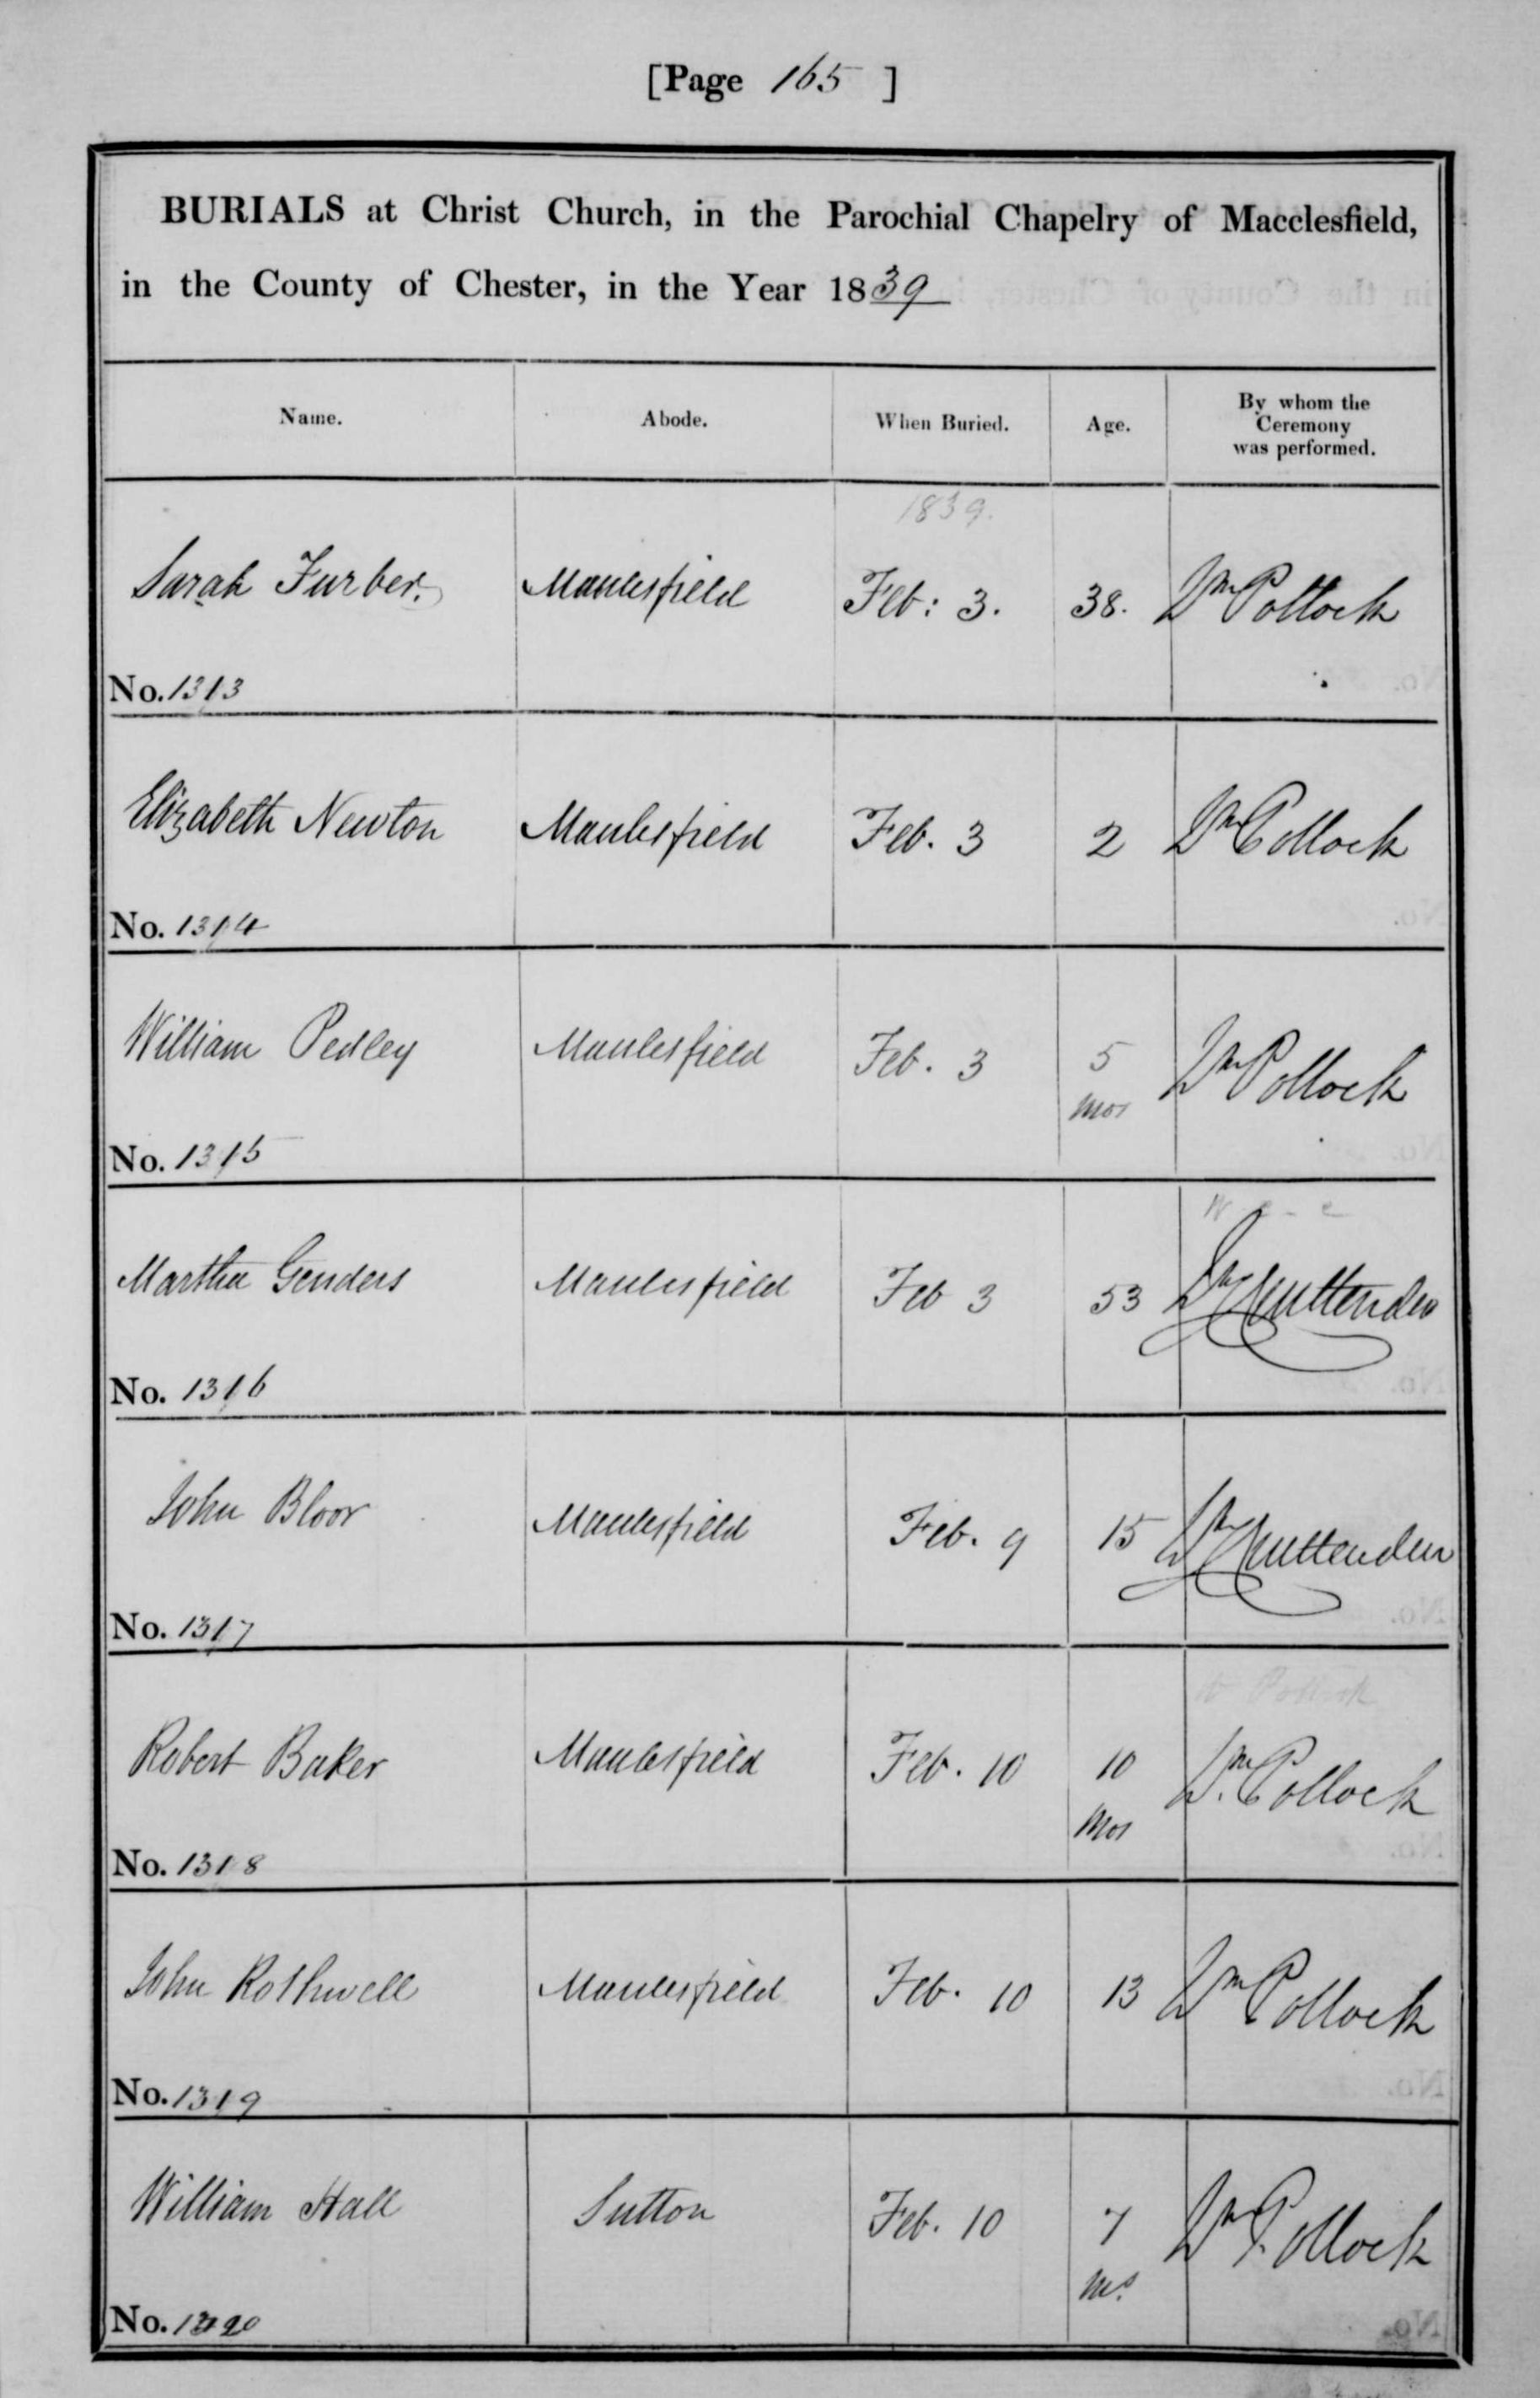 [Page 165 ]
BURIALS at Christ Church, in the Parochial Chapelry of Macclesfield,
in the County of Chester, in the Year 1839
Name. Abode. When Buried. Age. By whom the Ceremony was performed.
1839.
Sarah Furber. Macclesfield Feb: 3. 38. Wm Pollock
No. 1313
Elizabeth Newton Macclesfield Feb. 3 2 Wm Pollock
No. 1314
William Pedley Macclesfield Feb. 3 5 mos Wm Pollock
No. 1315
Martha Genders Macclesfield Feb 3 53 Wm
No. 1316
John Bloor Macclesfield Feb. 9 15 Wm
No. 1317
W Pollock
Robert Baker Macclesfield Feb. 10 10 Mos Wm. Pollock
No. 1318
John Rothwell Macclesfield Feb. 10 13 Wm Pollock
No. 1319
William Hall Sutton Feb. 10 7 Ms. Wm Pollock
No. 1320